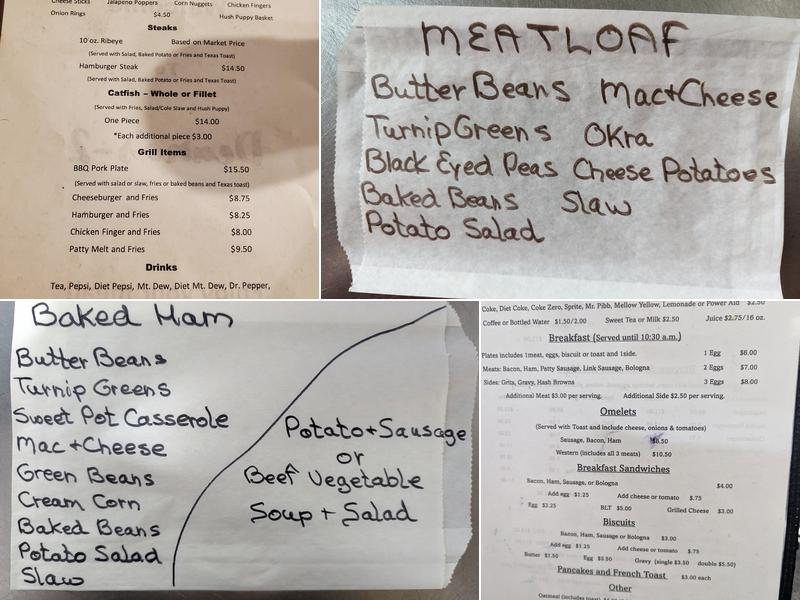 Cheese Sticks Jalapeno Poppers Corn Nuggets Chicken Fingers
Onion Rings $4.50 Hush Puppy Basket
Steaks
10 oz. Ribeye Based on Market Price
(Served with Salad, Baked Potato or Fries and Texas Toast)
Hamburger Steak $14.50
(Served with Salad, Baked Potato or Fries and Texas Toast)
Catfish – Whole or Fillet
(Served with Fries, Salad/Cole Slaw and Hush Puppy)
One Piece $14.00
*Each additional piece $3.00
Grill Items
BBQ Pork Plate $15.50
(Served with salad or slaw, fries or baked beans and Texas toast)
Cheeseburger and Fries $8.75
Hamburger and Fries $8.25
Chicken Finger and Fries $8.00
Patty Melt and Fries $9.50
Drinks
Tea, Pepsi, Diet Pepsi, Mt. Dew, Diet Mt. Dew, Dr. Pepper,
MEATLOAF
Butter Beans Mac+Cheese
Turnip Greens Okra
Black Eyed Peas Cheese Potatoes
Baked Beans Slaw
Potato Salad
Baked Ham
Butter Beans
Turnip Greens
Sweet Pot Casserole
Mac + Cheese
Green Beans
Cream Corn
Baked Beans
Potato Salad
Slaw
Potato + Sausage
or
Beef Vegetable
Soup + Salad
Coke, Diet Coke, Coke Zero, Sprite, Mr. Pibb, Mellow Yellow, Lemonade or Power Aid $2.50
Coffee or Bottled Water $1.50/2.00 Sweet Tea or Milk $2.50 Juice $2.75/16 oz.
Breakfast (Served until 10:30 a.m.)
Plates includes 1meat, eggs, biscuit or toast and 1side. 1 Egg $6.00
Meats: Bacon, Ham, Patty Sausage, Link Sausage, Bologna 2 Eggs $7.00
Sides: Grits, Gravy, Hash Browns 3 Eggs $8.00
Additional Meat $3.00 per serving. Additional Side $2.50 per serving.
Omelets
(Served with Toast and include cheese, onions & tomatoes)
Sausage, Bacon, Ham .50
Western (includes all 3 meats) $10.50
Breakfast Sandwiches
Bacon, Ham, Sausage, or Bologna $4.00
Add egg $1.25 Add cheese or tomato $.75
Egg $3.25 BLT $5.00 Grilled Cheese $3.00
Biscuits
Bacon, Ham, Sausage or Bologna $3.00
Add egg $1.25 Add cheese or tomato $.75
Butter $1.50 Egg $2.50 Gravy (single $3.50 double $5.50)
Pancakes and French Toast $3.00 each
Other
Oatmeal (includes toast)